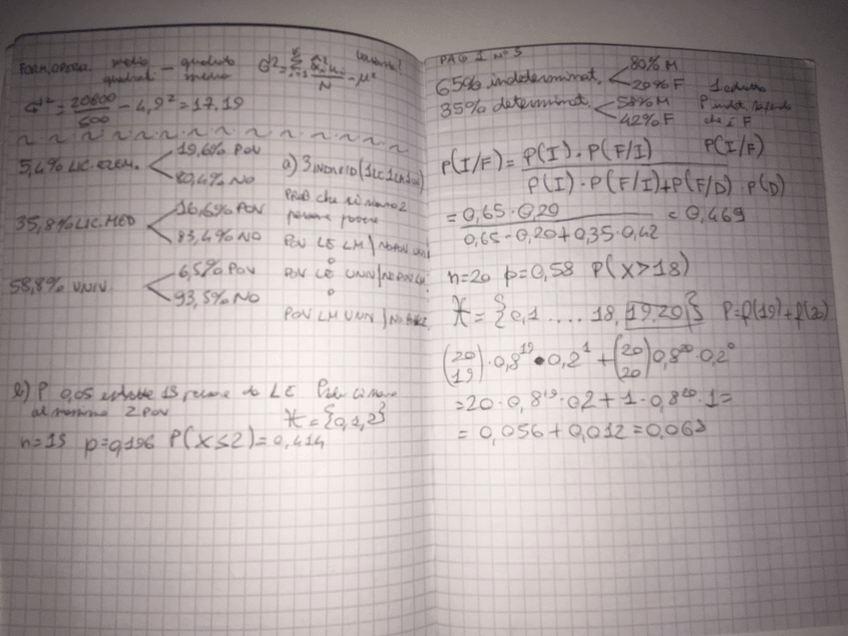 FORM. OPERA. media quadrati - quadrato media σ² = Σ x̄ᵢ²nᵢ / N - μ²
σ² = 20600/500 - 4,9² = 17.19
5,4% LIC. ELEM. 19,6% POV
80,4% NO
35,8% LIC MED 16,6% POV
83,4% NO
58,8% UNIV. 6,5% POV
93,5% NO
a) 3 INDIVID
PROB che ci siano 2
persone povere
POV LE LM | NOPOV UNI
o
POV LE UNIV | NOPOV LM
o
POV LM UNIV
b) P 0,05 estratte 13 persone da LE Prob ci siano
al massimo 2 POV
X = {0,1,2}
n=13 p=0,196 P(X≤2)=0,414
PAG 1 N°5
65% indeterminat. 80% M
20% F
35% determinat. 58% M
42% F
1 estratto
P indet. sapendo
che è F
P(I/F) = P(I) · P(F/I) / P(I) · P(F/I) + P(F/D) · P(D)
P(I/F)
= 0,65 · 0,20 / 0,65 · 0,20 + 0,35 · 0,42 = 0,469
n=20 p=0,58 P(X>18)
X = {0,1 .... 18, 19,20} P=P(19)+P(20)
(20 19) · 0,8¹⁹ · 0,2¹ + (20 20) 0,8²⁰ · 0,2⁰
= 20 · 0,8¹⁹ · 02 + 1 · 0,8²⁰ · 1 =
= 0,056 + 0,012 = 0,068